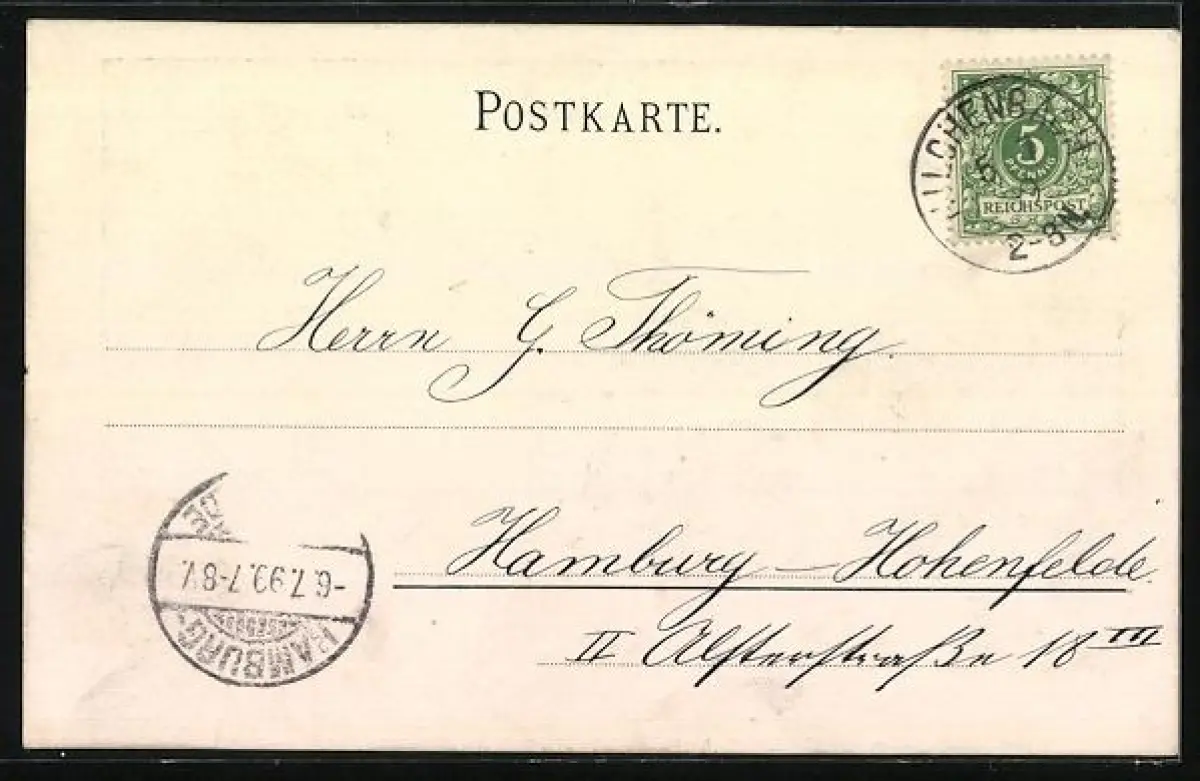 POSTKARTE.
5
PFENNIG
REICHSPOST
5 7
99
2-3N.
Herrn G. Thöming.
Hamburg – Hohenfelde.
II Alsterstraße 18 III
-6.7.99.7-8V.
HAMBURG